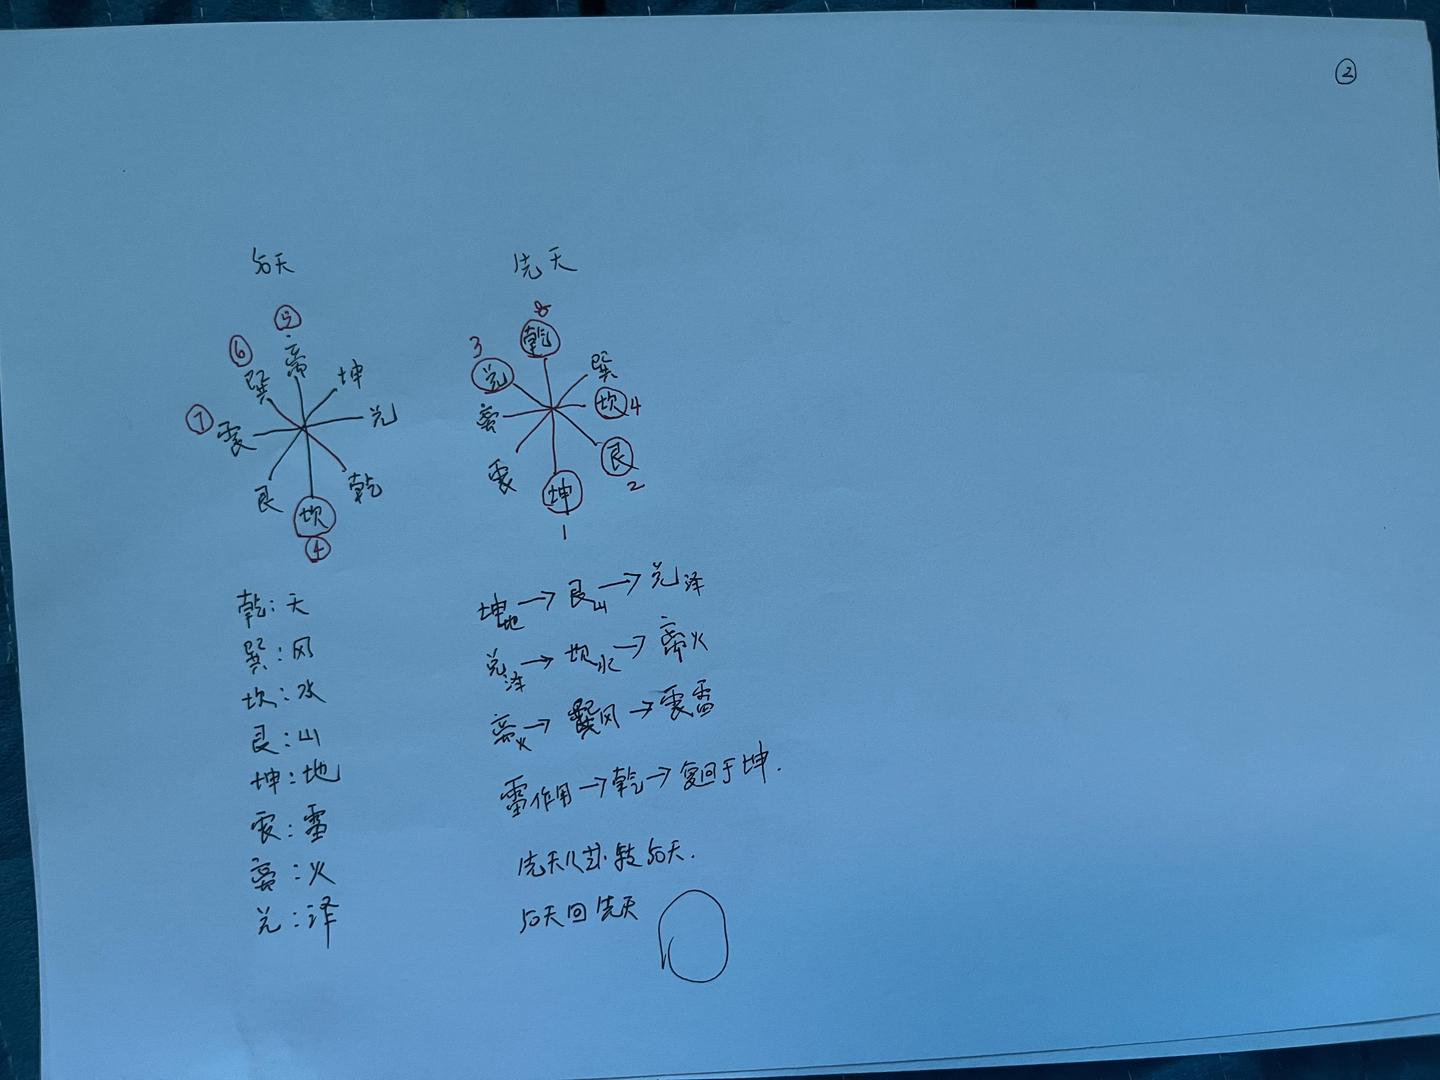 ②
后天
先天
⑤
8
⑥
离
乾
3
坤
巽
兑
巽
⑦
震
兑
离
坎 4
艮
乾
震
艮
2
坎
坤
④
1
乾:天
巽:风
坎:水
艮:山
坤:地
震:雷
离:火
兑:泽
坤地→艮山→兑泽
兑泽→坎水→离火
离火→巽风→震雷
雷作用→乾→复回于坤.
先天八卦转后天.
后天回先天